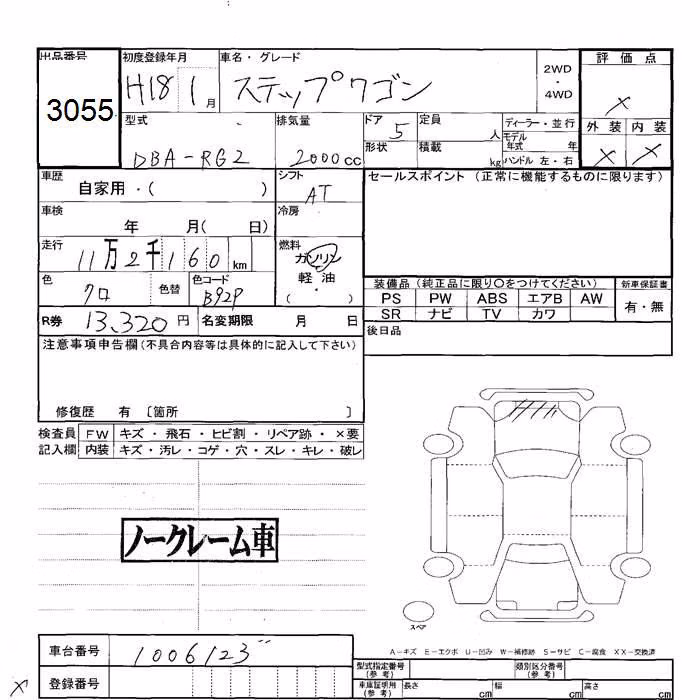 出品番号 初度登録年月 車名・グレード 評価点
3055 H18 1月 ステップワゴン 2WD ・ 4WD ×
型式 排気量 ドア 定員 ディーラー・並行 外装 内装
DBA-RG2 2000cc 5 人 モデル年式 年 × ×
形状 積載 kg ハンドル 左・右
車歴 シフト セールスポイント (正常に機能するものに限ります)
自家用・( ) AT
車検 冷房
年 月( 日)
走行 燃料
11万2千160km ガソリン
色 色替 色コード 軽油・
クロ B92P ( )
装備品 (純正品に限り〇をつけてください) 新車保証書
PS PW ABS エアB AW 有・無
SR ナビ TV カワ
R券 13,320円 名変期限 月 日
後日品
注意事項申告欄 (不具合内容等は具体的に記入して下さい)
修復歴 有 〔箇所 〕
検査員 FW キズ・飛石・ヒビ割・リペア跡・×要
記入欄 内装 キズ・汚レ・コゲ・穴・スレ・キレ・破レ
ノークレーム車
スペア
A-キズ E-エクボ U-凹み W-補修跡 S-サビ C-腐食 XX-交換済
車台番号 1006123
型式指定番号(参考) 類別区分番号(参考)
登録番号
車庫証明用(参考) 長さ cm 幅 cm 高さ cm
×